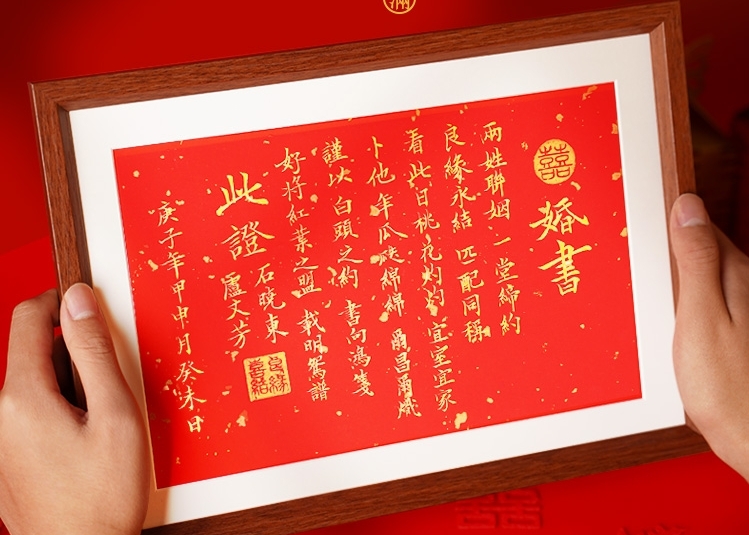 滿
囍
婚書
兩姓聯姻 一堂締約
良緣永結 匹配同稱
看此日桃花灼灼 宜室宜家
卜他年瓜瓞綿綿 爾昌爾熾
謹以白頭之約 書向鴻箋
好將紅葉之盟 載明鴛譜
此證
石曉東
盧文芳
良緣
善結
庚子年甲申月癸未日